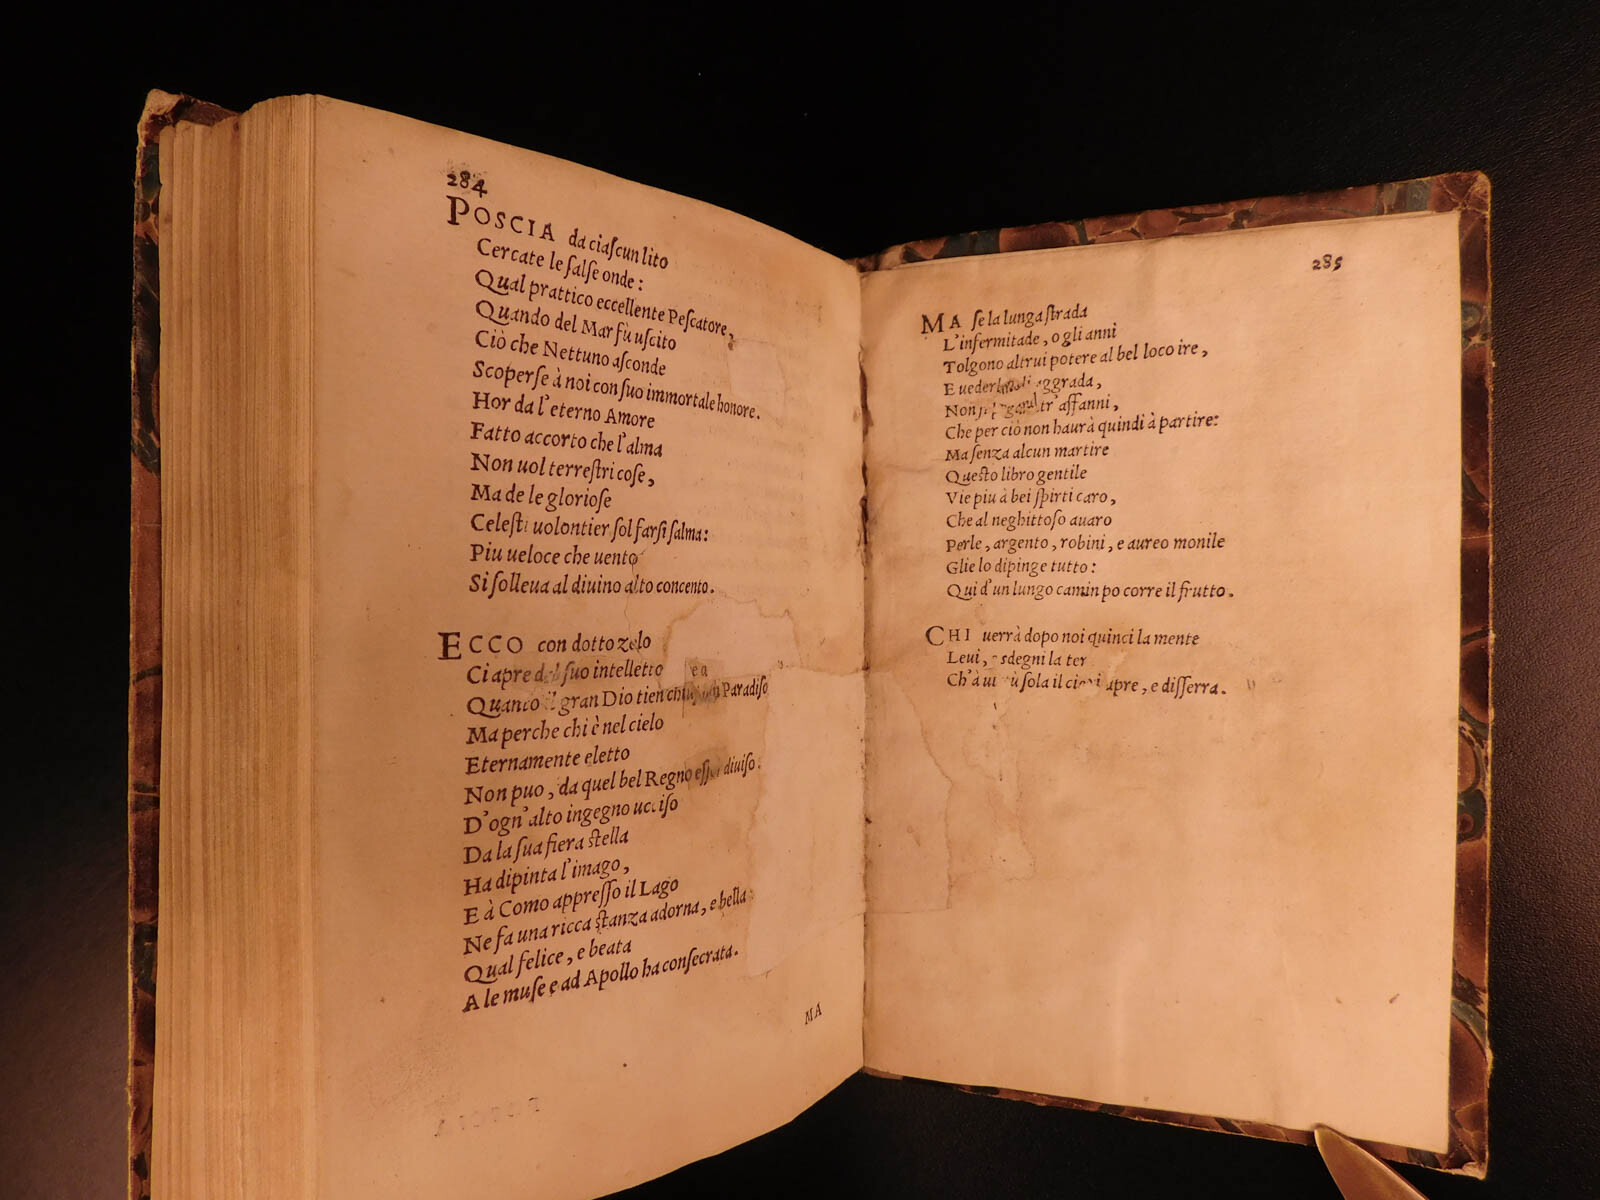 284
POSCIA da ciaſcun lito
Cercate le ſalſe onde:
Qual prattico eccellente Peſcatore,
Quando del Mar fù uſcito
Ciò che Nettuno aſconde
Scoperſe à noi con ſuo immortale honore.
Hor da l'eterno Amore
Fatto accorto che l'alma
Non uol terreſtri coſe,
Ma de le glorioſe
Celeſti uolontier ſol farſi ſalma:
Piu ueloce che uento
Si ſolleua al diuino alto concento.
ECCO con dotto zelo
Ci apre del ſuo intelletto
Quanto il gran Dio tien Paradiſo
Ma perche chi è nel cielo
Eternamente eletto
Non puo, da quel bel Regno eſſer diuiſo:
D'ogn'alto ingegno ucciſo
Da la ſua fiera ſtella
Ha dipinta l'imago,
E à Como appreſſo il Lago
Ne fa una ricca ſtanza adorna, e bella:
Qual felice, e beata
A le muſe e ad Apollo ha conſecrata.
MA
285
MA ſe la lunga ſtrada
L'infermitade, o gli anni
Tolgono altrui potere al bel loco ire,
E ueder aggrada,
Non tr'affanni,
Che per ciò non haurà quindi à partire:
Ma ſenza alcun martire
Queſto libro gentile
Vie piu à bei ſpirti caro,
Che al neghittoſo auaro
Perle, argento, robini, e aureo monile
Glie lo dipinge tutto:
Qui d'un lungo camin po corre il frutto.
CHI uerrà dopo noi quinci la mente
Leui, sdegni la ter
Ch'à ui ſola il apre, e diſſerra.